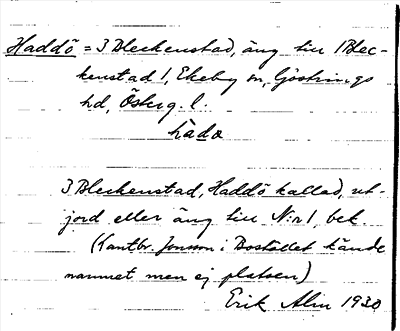 Haddö = 3 Bleckenstad, äng till 1 Blec-
kenstad 1, Ekeby sn, Göstrings
hd, Österg. l.
hadə
3 Bleckenstad, Haddö kallad, ut-
jord eller äng till N:r 1, bek.
(Kantor Jonson i Bostället kände
namnet men ej platsen)
Erik Alin 1930